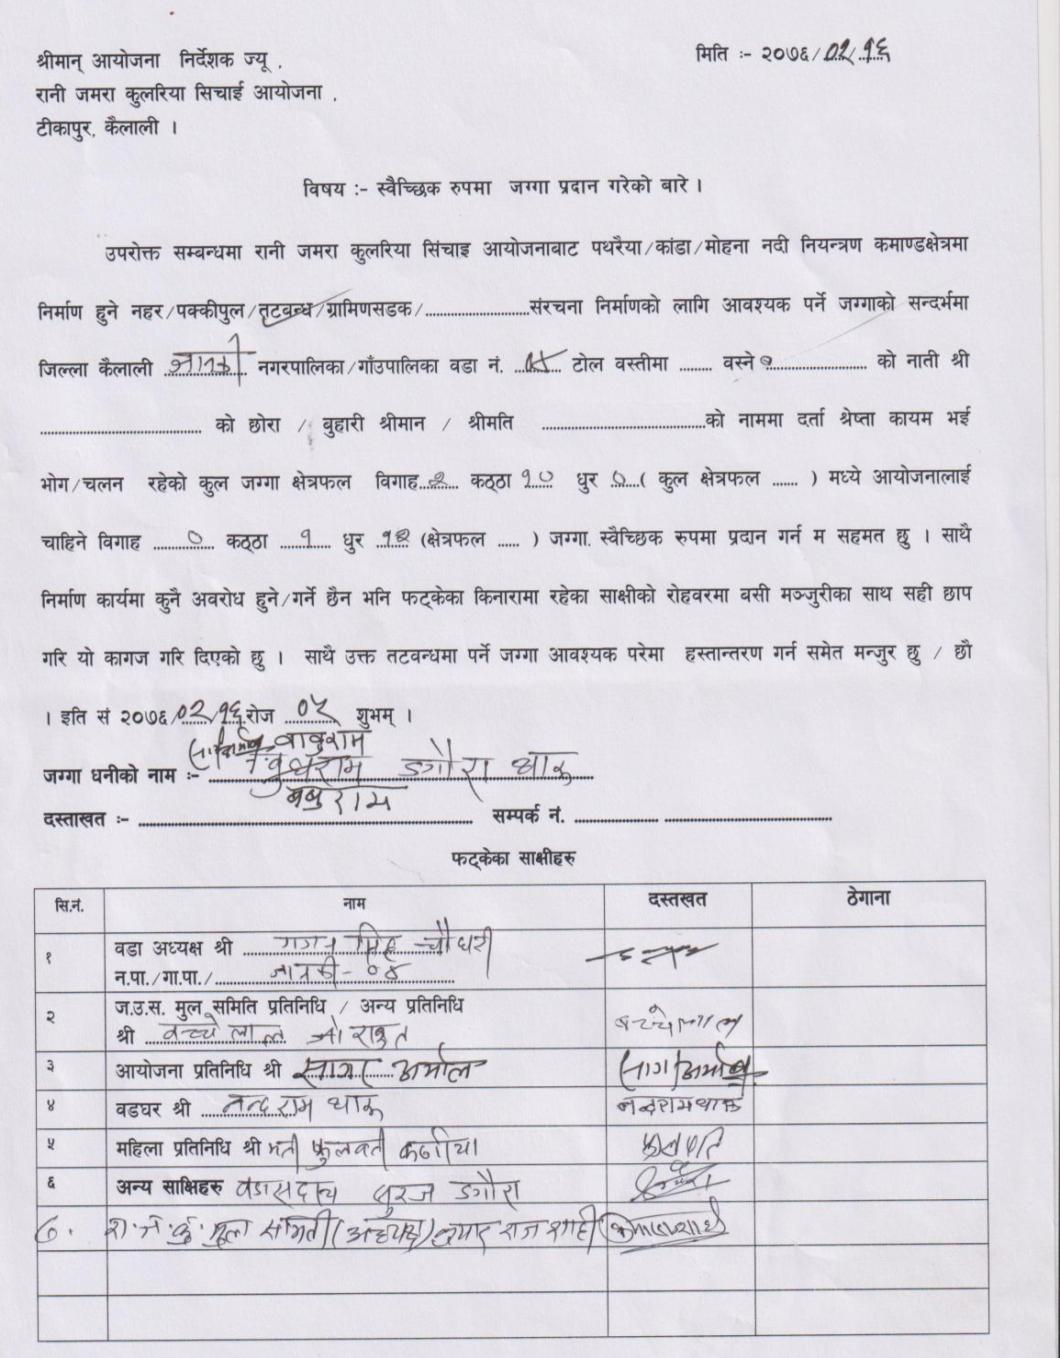 श्रीमान् आयोजना निर्देशक ज्यू .
मिति :- २०७६/०२/१६
रानी जमरा कुलरिया सिचाई आयोजना .
टीकापुर, कैलाली ।
विषय :- स्वैच्छिक रुपमा जग्गा प्रदान गरेको बारे ।
उपरोक्त सम्बन्धमा रानी जमरा कुलरिया सिंचाइ आयोजनाबाट पथरैया/कांडा/मोहना नदी नियन्त्रण कमाण्डक्षेत्रमा
निर्माण हुने नहर/पक्कीपुल/तटबन्ध/ग्रामिणसडक/..........................संरचना निर्माणको लागि आवश्यक पर्ने जग्गाको सन्दर्भमा
जिल्ला कैलाली जानकी नगरपालिका/गाँउपालिका वडा नं. टोल वस्तीमा ........ वस्ने .......................... को नाती श्री
........................................ को छोरा / बुहारी श्रीमान / श्रीमति ........................................को नाममा दर्ता श्रेष्ता कायम भई
भोग/चलन रहेको कुल जग्गा क्षेत्रफल विगाह..२.. कठ्ठा १० धुर ०...( कुल क्षेत्रफल ...... ) मध्ये आयोजनालाई
चाहिने विगाह ....०.... कठ्ठा ....१.... धुर (क्षेत्रफल ..... ) जग्गा. स्वैच्छिक रुपमा प्रदान गर्न म सहमत छु । साथै
निर्माण कार्यमा कुनै अवरोध हुने/गर्ने छैन भनि फट्केका किनारामा रहेका साक्षीको रोहवरमा बसी मञ्जुरीका साथ सही छाप
गरि यो कागज गरि दिएको छु । साथै उक्त तटवन्धमा पर्ने जग्गा आवश्यक परेमा हस्तान्तरण गर्न समेत मन्जुर छु / छौ
। इति सं २०७६/०२/१६ रोज ०५ शुभम् ।
बाबुराम
जग्गा धनीको नाम :- बुधराम डगौरा थारू
बाबुराम
दस्ताखत :- ........................................ सम्पर्क नं. .................. ..................................
फट्केका साक्षीहरु
सि.नं. नाम दस्तखत ठेगाना
१ वडा अध्यक्ष श्री गगन सिंह चौधरी
न.पा./गा.पा./ जानकी - ०४
२ ज.उ.स. मुल समिति प्रतिनिधि / अन्य प्रतिनिधि
श्री बच्चे लाल बच्चेलाल
३ आयोजना प्रतिनिधि श्री सागर अर्माल
४ वडघर श्री नन्दराम थारू नन्दरामथारू
५ महिला प्रतिनिधि श्री मती फुलवती कठरिया
६ अन्य साक्षिहरु वडा सदस्य सुरज डगौरा
७. रा.ज.कु. मुल समिती (अध्यक्ष) राज शाही